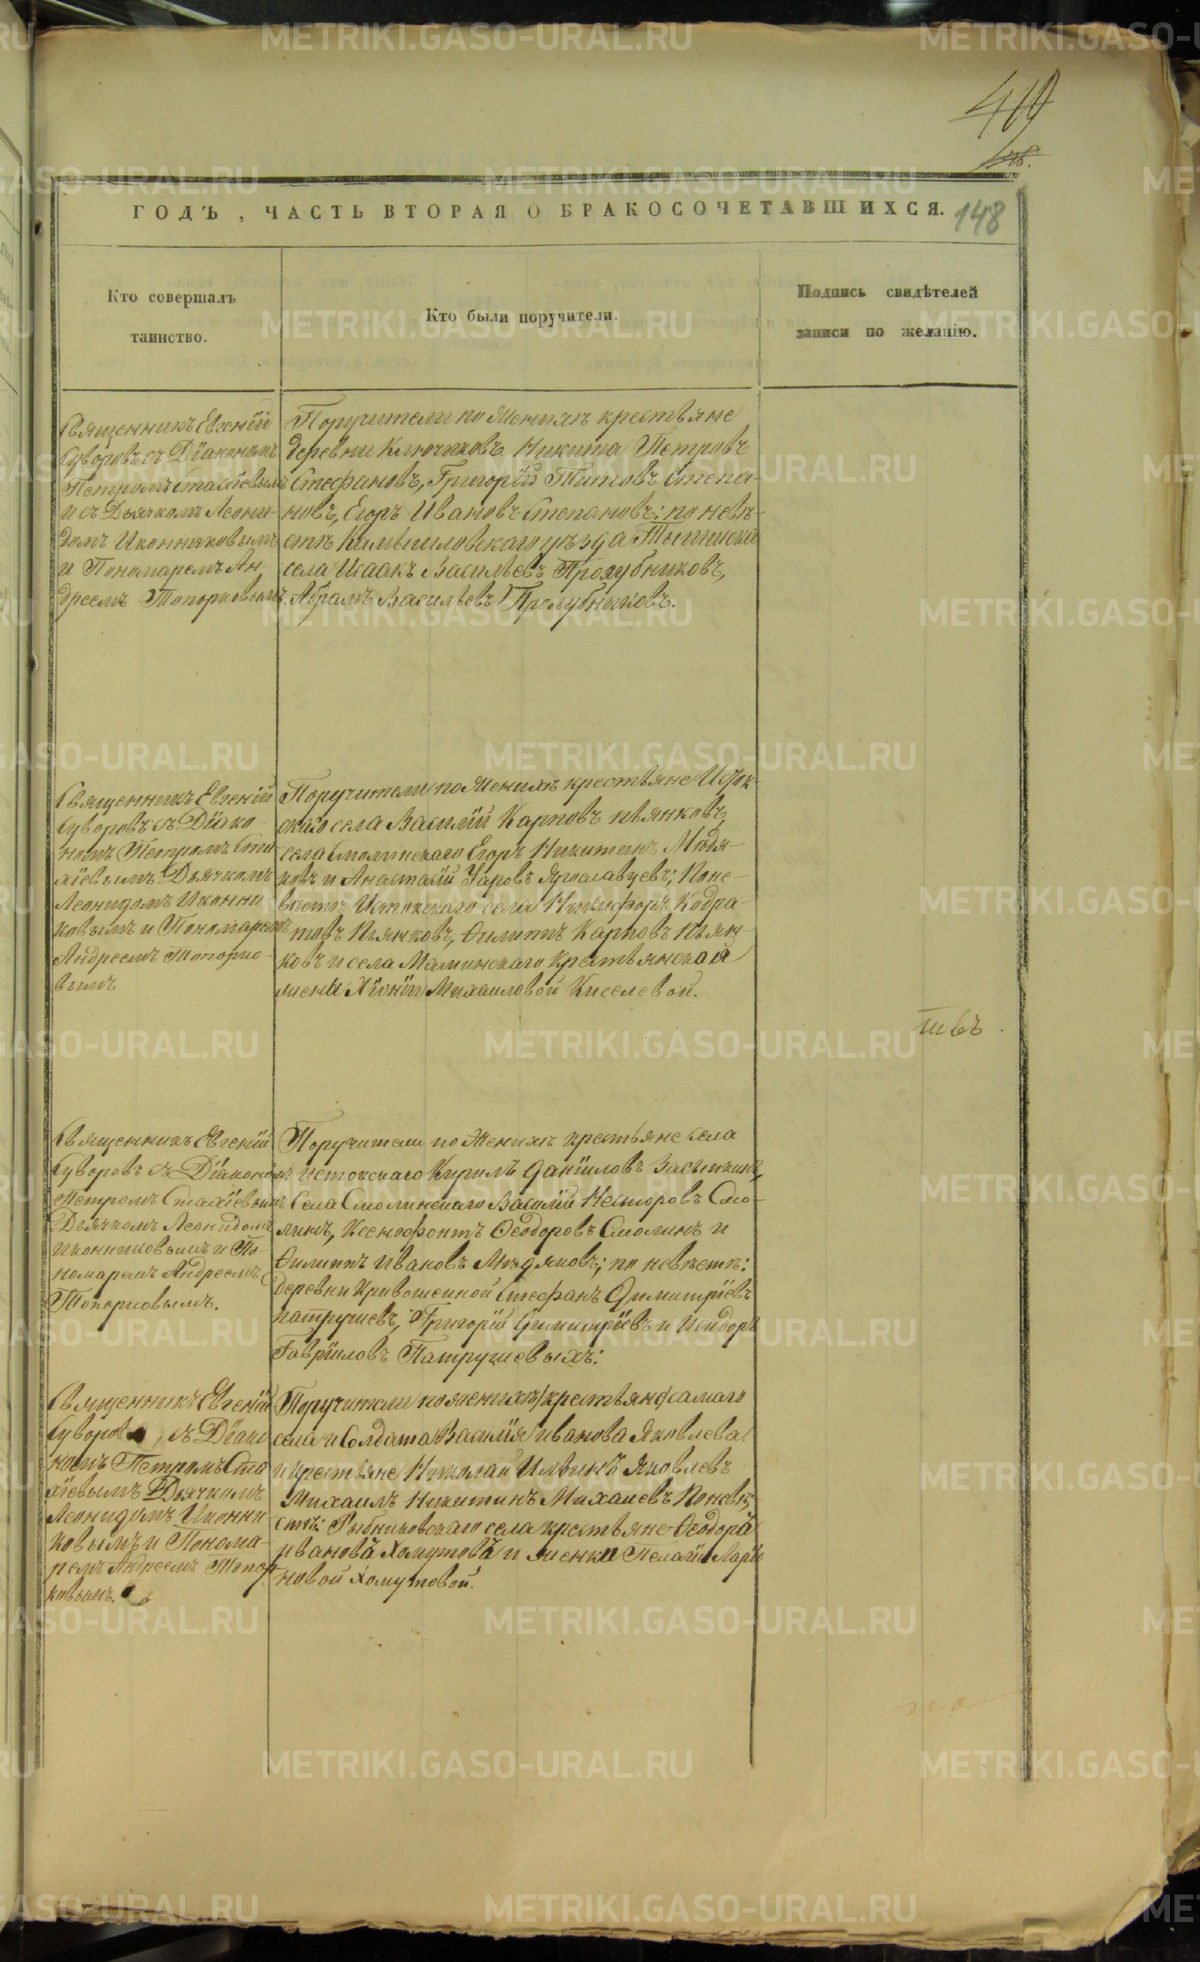 419
148
ГОДЪ, ЧАСТЬ ВТОРАЯ О БРАКОСОЧЕТАВШИХСЯ.
Кто совершалъ
таинство.
Кто были поручители.
Подпись свидѣтелей
записи по желанію.
Священникъ Евгеній
Суворовъ съ Діакономъ
Петромъ Стахіевымъ
и съ Дьячкомъ Леони-
домъ Иконниковымъ
и Пономаремъ Ан-
дреемъ Топорковымъ
Поручители по Женихѣ крестьяне
деревни Ключиковъ Никита Петровъ
Стефановъ, Григорій Титовъ Степа-
новъ, Егоръ Ивановъ Степановъ: по невѣ-
стѣ Камышловскаго уѣзда
села Исаакъ Васильевъ Пролубниковъ,
Абрамъ Васильевъ Пролубниковъ.
Священникъ Евгеній
Суворовъ съ Діако-
номъ Петромъ Ста
хіевымъ Дьячкомъ
Леонидомъ Иконни
ковымъ и Пономаремъ
Андреемъ Топорко-
вымъ
Поручители по Женихѣ крестьяне Исток-
скаго села Василій Карповъ Пьянковъ,
села Смолинскаго Егоръ Никитинъ Мѣдя-
ковъ и Анастасій Уаровъ Ярославцевъ; По не-
вѣстѣ Истокскаго села Никифоръ Кодра-
товъ Пьянковъ, Филиппъ Карповъ Пьян-
ковъ и села Маминскаго Крестьянской
жены Хіоніи Михаиловой Киселевой.
Священникъ Евгеній
Суворовъ съ Діакономъ
Петромъ Стахіевымъ
Дьячкомъ Леонидомъ
Иконниковымъ и По-
номаремъ Андреемъ
Топорковымъ.
Поручители по Женихѣ крестьяне села
Истокскаго Кирилъ Даніиловъ Засыпкинъ,
Села Смолинскаго Василій Несторовъ Смо-
линъ, Ксенофонтъ Ѳеодоровъ Смолинъ и
Филиппъ Ивановъ Мѣдяковъ; по невѣстѣ:
деревни Кривошеиной Стефанъ Димитріевъ
Патрушевъ, Григорій Димитріевъ и Исидоръ
Гавріиловъ Патрушевыхъ:
Священникъ Евгеній
Суворовъ, съ Діако
номъ Петромъ Ста
хіевымъ Дьячкомъ
Леонидомъ Иконни
ковымъ и Понома-
ремъ Андреемъ Топор
ковымъ.
Поручители по женихѣ крестьяне самаго
села и Солдата Василія Иванова Яковлева.
и крестьяне Николай Ильинъ Яковлевъ
Михаилъ Никитинъ Михаиевъ По невѣ-
стѣ: Рыбниковскаго села крестьяне Ѳеодора
Иванова Хомутова и женки Пелагіи Ларіо
новой Хомутовой.